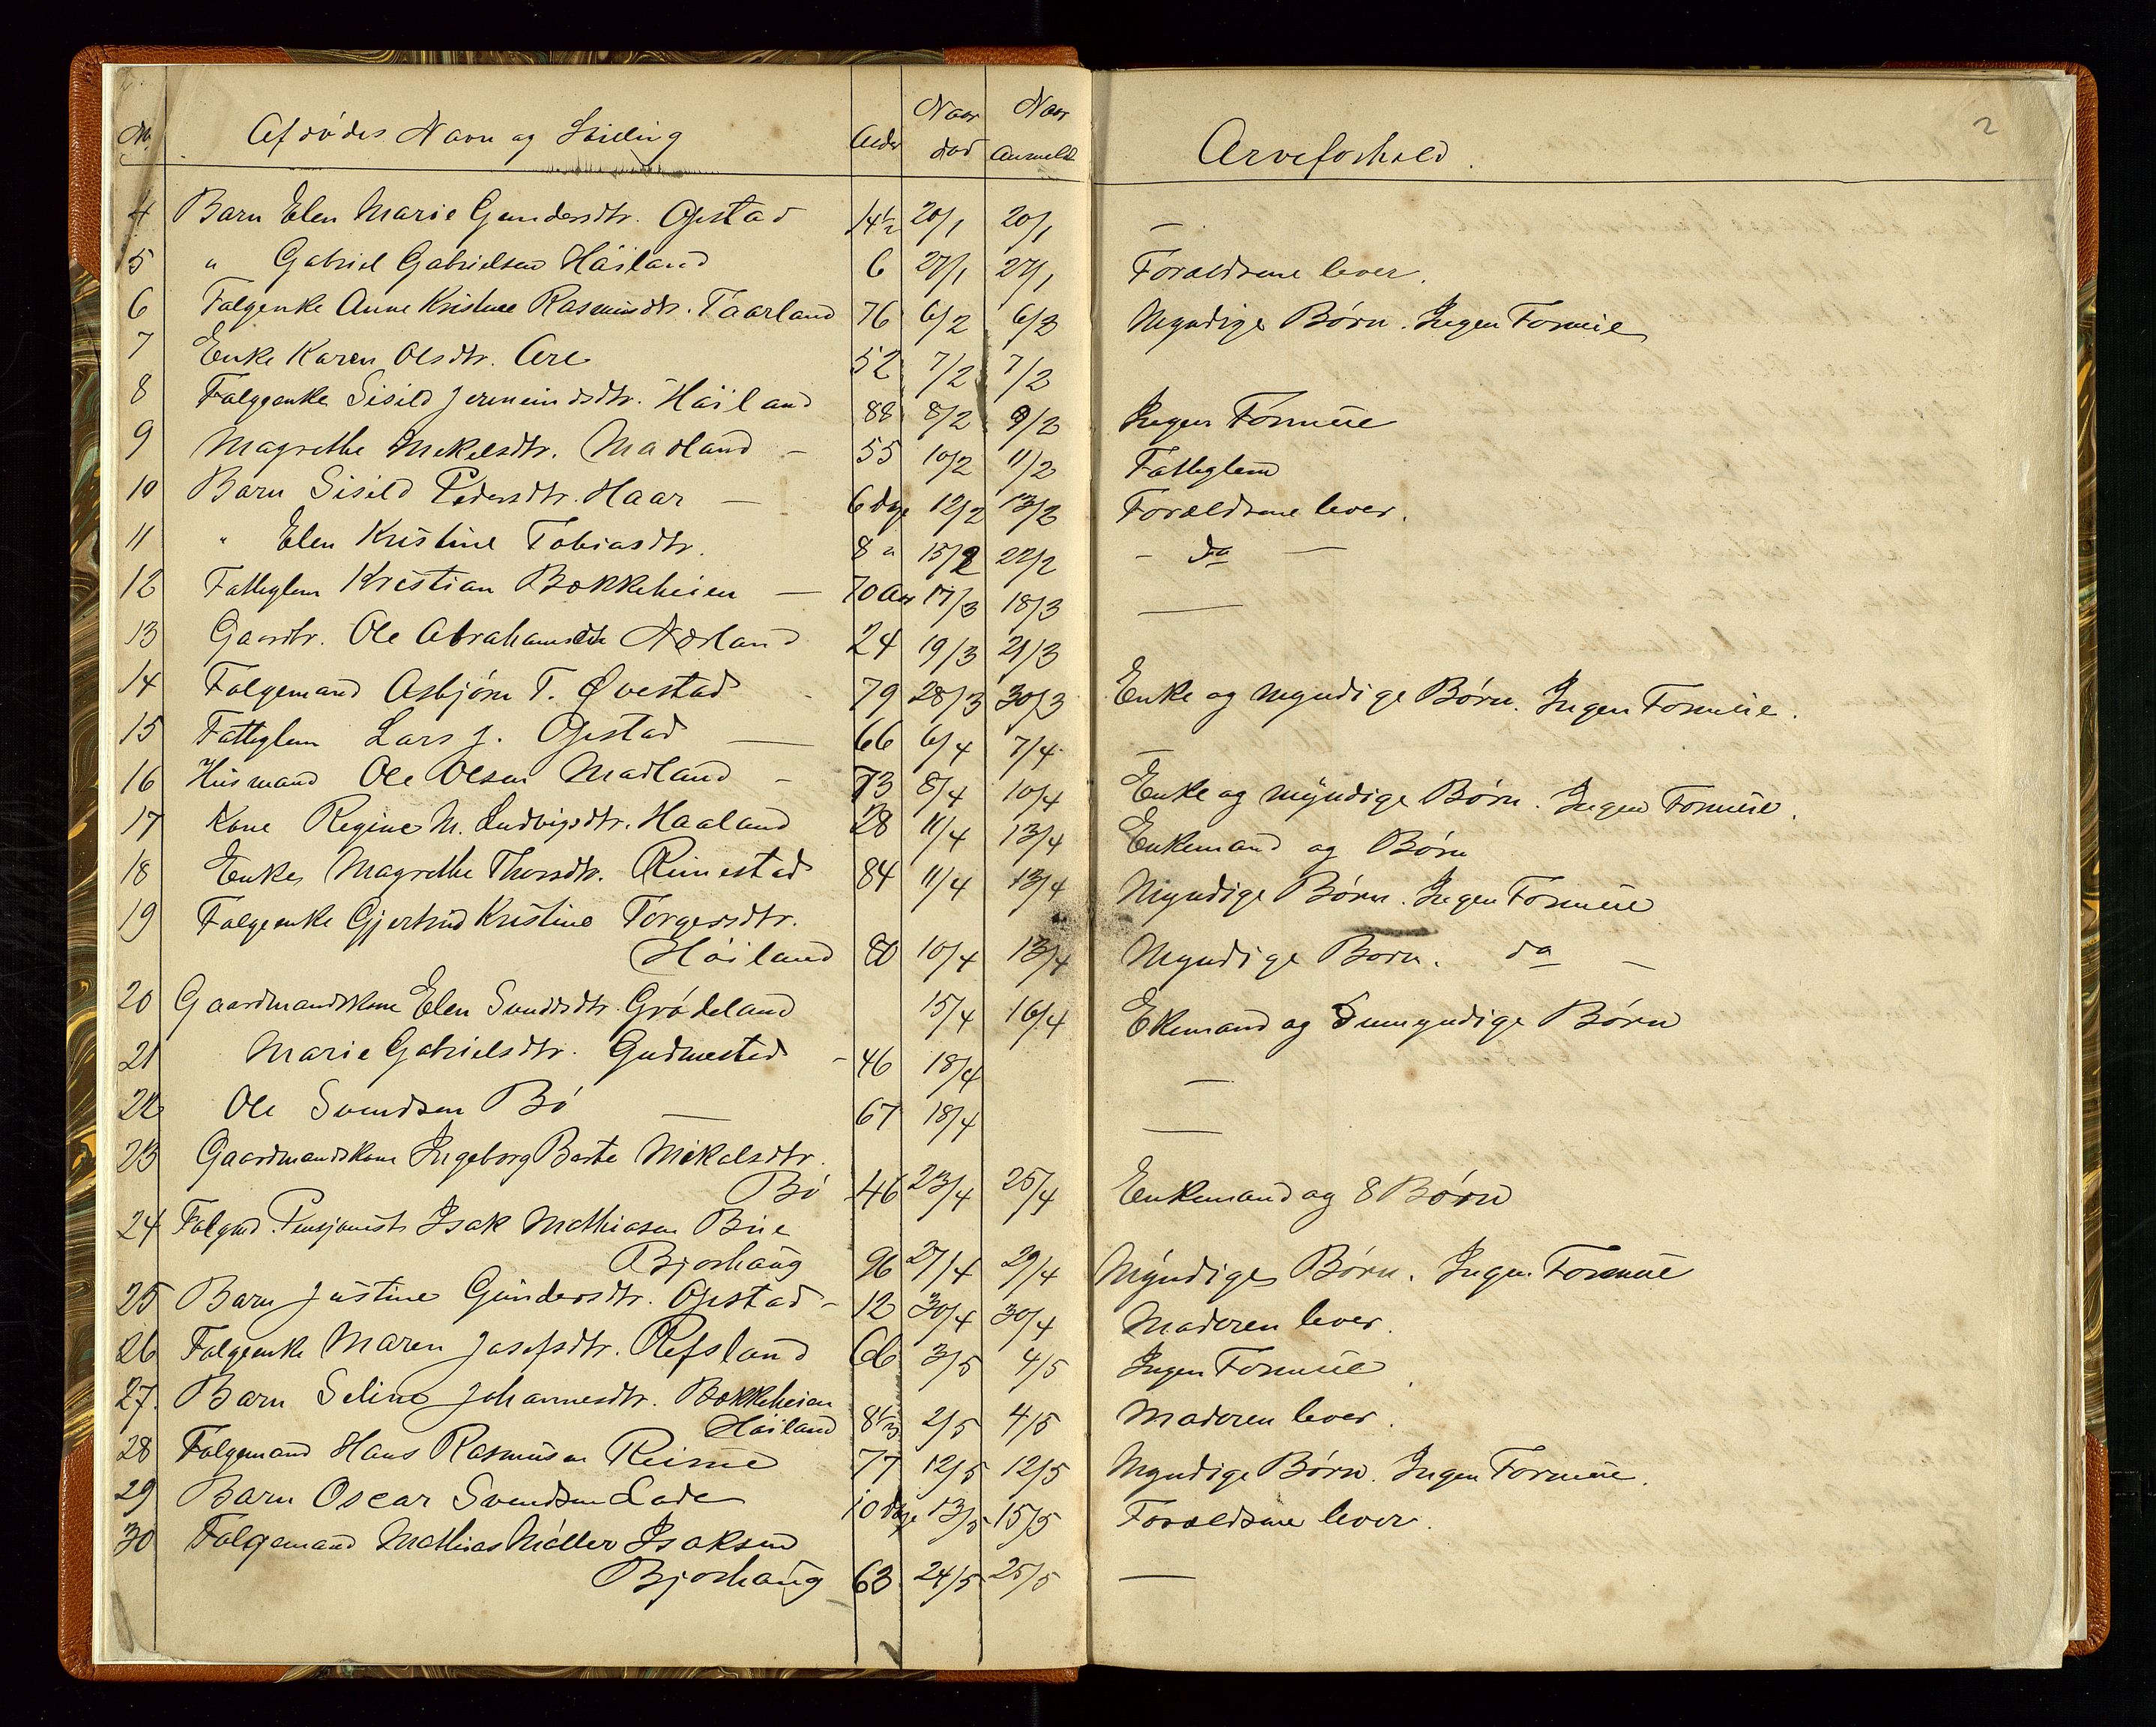 2
No Afdødes Navn og Stilling Alder Naar død Naar Anmeldt Arveforhold.
4 Barn Elen Marie Gundersdtr. Opstad 14½ 20/1 20/1 —
5 " Gabriel Gabrielsen Håiland 6 27/1 27/1 Forældrene lever.
6 Folgenke Anne Kristine Rasmusdtr. Taarland 76 6/2 6/2 Myndige Børn. Ingen Formue
7 Enke Karen Olsdtr. Are 52 7/2 7/2
8 Folgenke Sisild Jermundsdtr. Håiland 88 8/2 9/2 Ingen Formue
9 Magrethe Mikelsdtr. Madland – 55 10/2 11/2 Fattiglem
10 Barn Sisild Pedersdtr. Haar — 6 dage 12/2 13/2 Forældrene lever.
11 " Elen Kristine Tobiasdtr. 8 " 15/2 22/2 – do —
12 Fattiglem Kristian Bokkeheien — 70 Aar 17/3 18/3 —
13 Gaardbr. Ole Abrahamsen Nærland 24 19/3 21/3
14 Folgemand Asbjørn T. Øvestad 79 28/3 30/3 Enke og Myndige Børn. Ingen Formue.
15 Fattiglem Lars J. Opstad — 66 6/4 7/4 —
16 Husmand Ole Olsen Madland – 73 8/4 10/4 Enke og Myndige Børn. Ingen Formue.
17 Kone Regine M. Ludvigsdtr. Haaland 28 11/4 13/4 Enkemand og Børn
18 Enke Magrethe Thorsdtr. Reimestad 84 11/4 13/4 Myndige Børn. Ingen Formue
19 Folgeenke Gjertrud Kristine Torgersdtr.
Håiland 80 10/4 13/4 Myndige Børn. do —
20 Gaardmandskone Elen Svendsdtr. Grødeland 15/4 16/4 Ekemand og 5 umyndige Børn
21 Marie Gabrielsdtr. Gudmestad – 46 18/4 —
22 Ole Svendsen Bø — 67 18/4 —
23 Gaardmandskone Ingeborg Berte Mikalsdtr.
Bø 46 23/4 25/4 Enkemand og 8 Børn
24 Folgmd. Pensjonist Isak Mathiasen Bue
Bjorhaug 96 27/4 29/4 Myndige Børn. Ingen Formue
25 Barn Justine Gundersdtr. Opstad – 12 30/4 30/4 Moderen lever.
26 Folgeenke Maren Josefsdtr. Refsland 66 3/5 4/5 Ingen Formue.
27. Barn Seline Johannesdtr. Bokkeheien
Håiland 8½ 2/5 4/5 Moderen lever.
28 Folgemand Hans Rasmusen Reime 77 12/5 12/5 Myndige Børn. Ingen Formue.
29 Barn Oscar Svendsen Lade 10 dage 13/5 15/5 Forældrene lever.
30 Folgemand Mathias Møller Isaksen
Bjorhaug 63 24/5 25/5 —